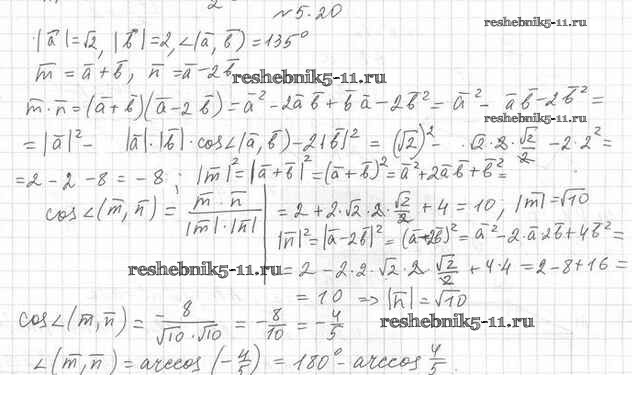 №5.20
reshebnik5-11.ru
|a̅|=√2, |b̅|=2, ∠(a̅, b̅)=135°
m̅ = a̅+b̅, n̅ =a̅-2b̅
reshebnik5-11.ru
m̅·n̅=(a̅+b̅)(a̅-2b̅)=a̅²-2a̅b̅+b̅a̅-2b̅²=a̅²-a̅b̅-2b̅²=
=|a̅|²- |a̅|·|b̅|·cos∠(a̅, b̅)-2|b̅|² = (√2)²- ·√2·2·√2/2 -2·2²=
=2-2-8=-8; |m̅|²=|a̅+b̅|²=(a̅+b̅)²=a̅²+2a̅b̅+b̅²=
cos∠(m̅, n̅)= m̅·n̅/|m̅|·|n̅| = 2+2·√2·2·√2/2+4=10, |m̅|=√10
|n̅|²=|a̅-2b̅|²=(a̅-2b̅)²=a̅²-2·a̅·2b̅+4b̅²=
reshebnik5-11.ru
=2-2·2·√2·2·√2/2+4·4=2-8+16=
=10 ⇒ |n̅|=√10
reshebnik5-11.ru
cos∠(m̅, n̅)= -8/√10·√10 = -8/10 = -4/5
∠(m̅, n̅)=arccos(-4/5) =180°-arccos 4/5.